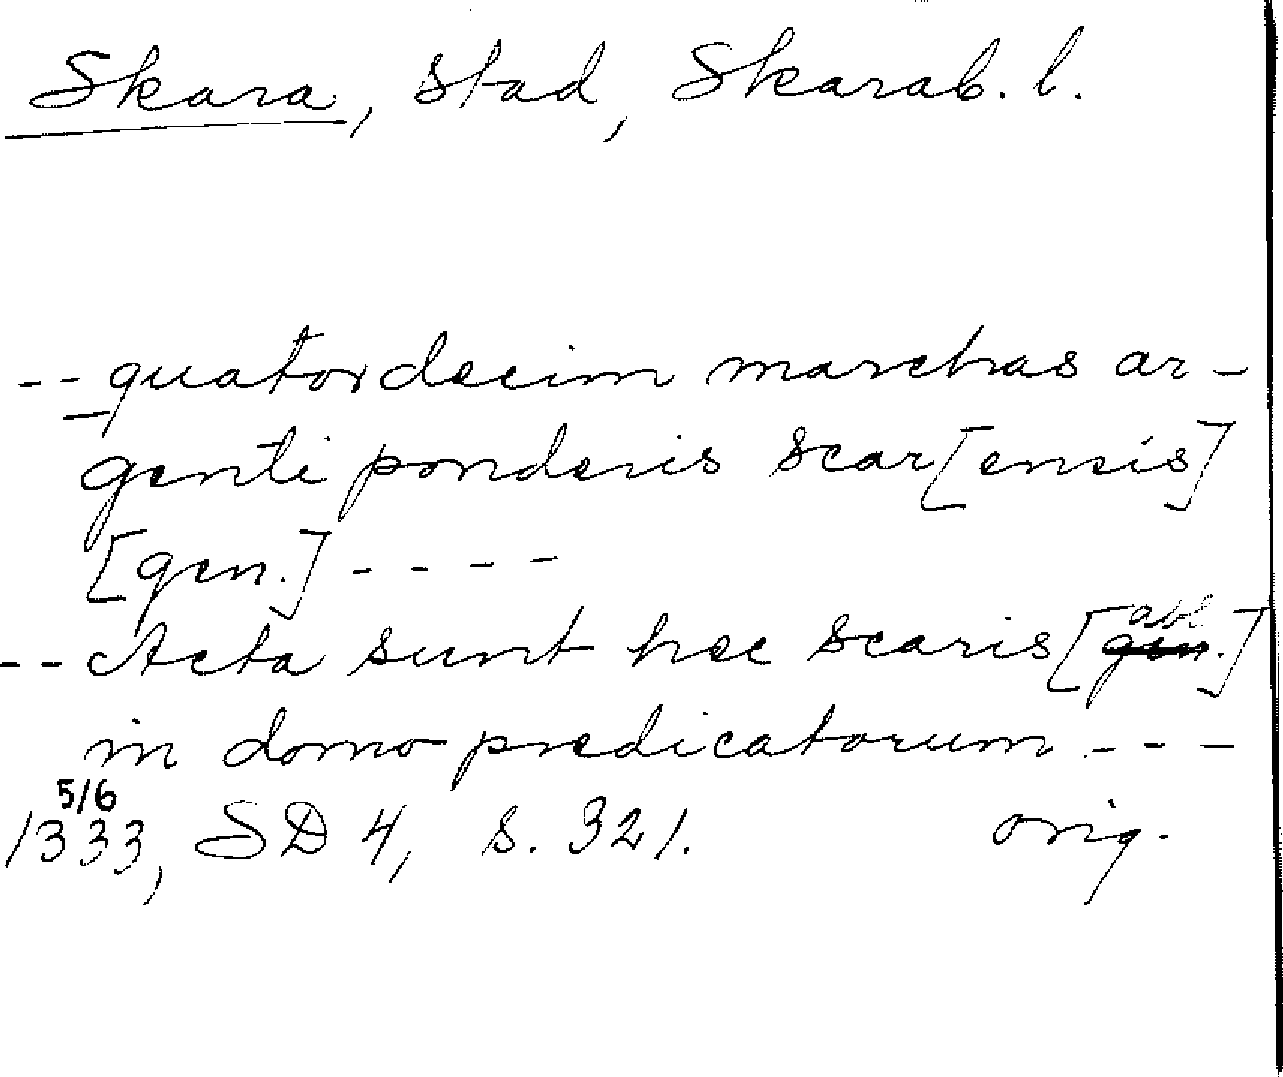 Skara, stad, Skarab. l.
-- quatordecim marchas ar-
genti ponderis scar[ensis]
[gen.] ----
-- Acta sunt hec scaris [abl.]
in domo predicatorum ---
5/6
1333, SD 4, s. 321. orig.